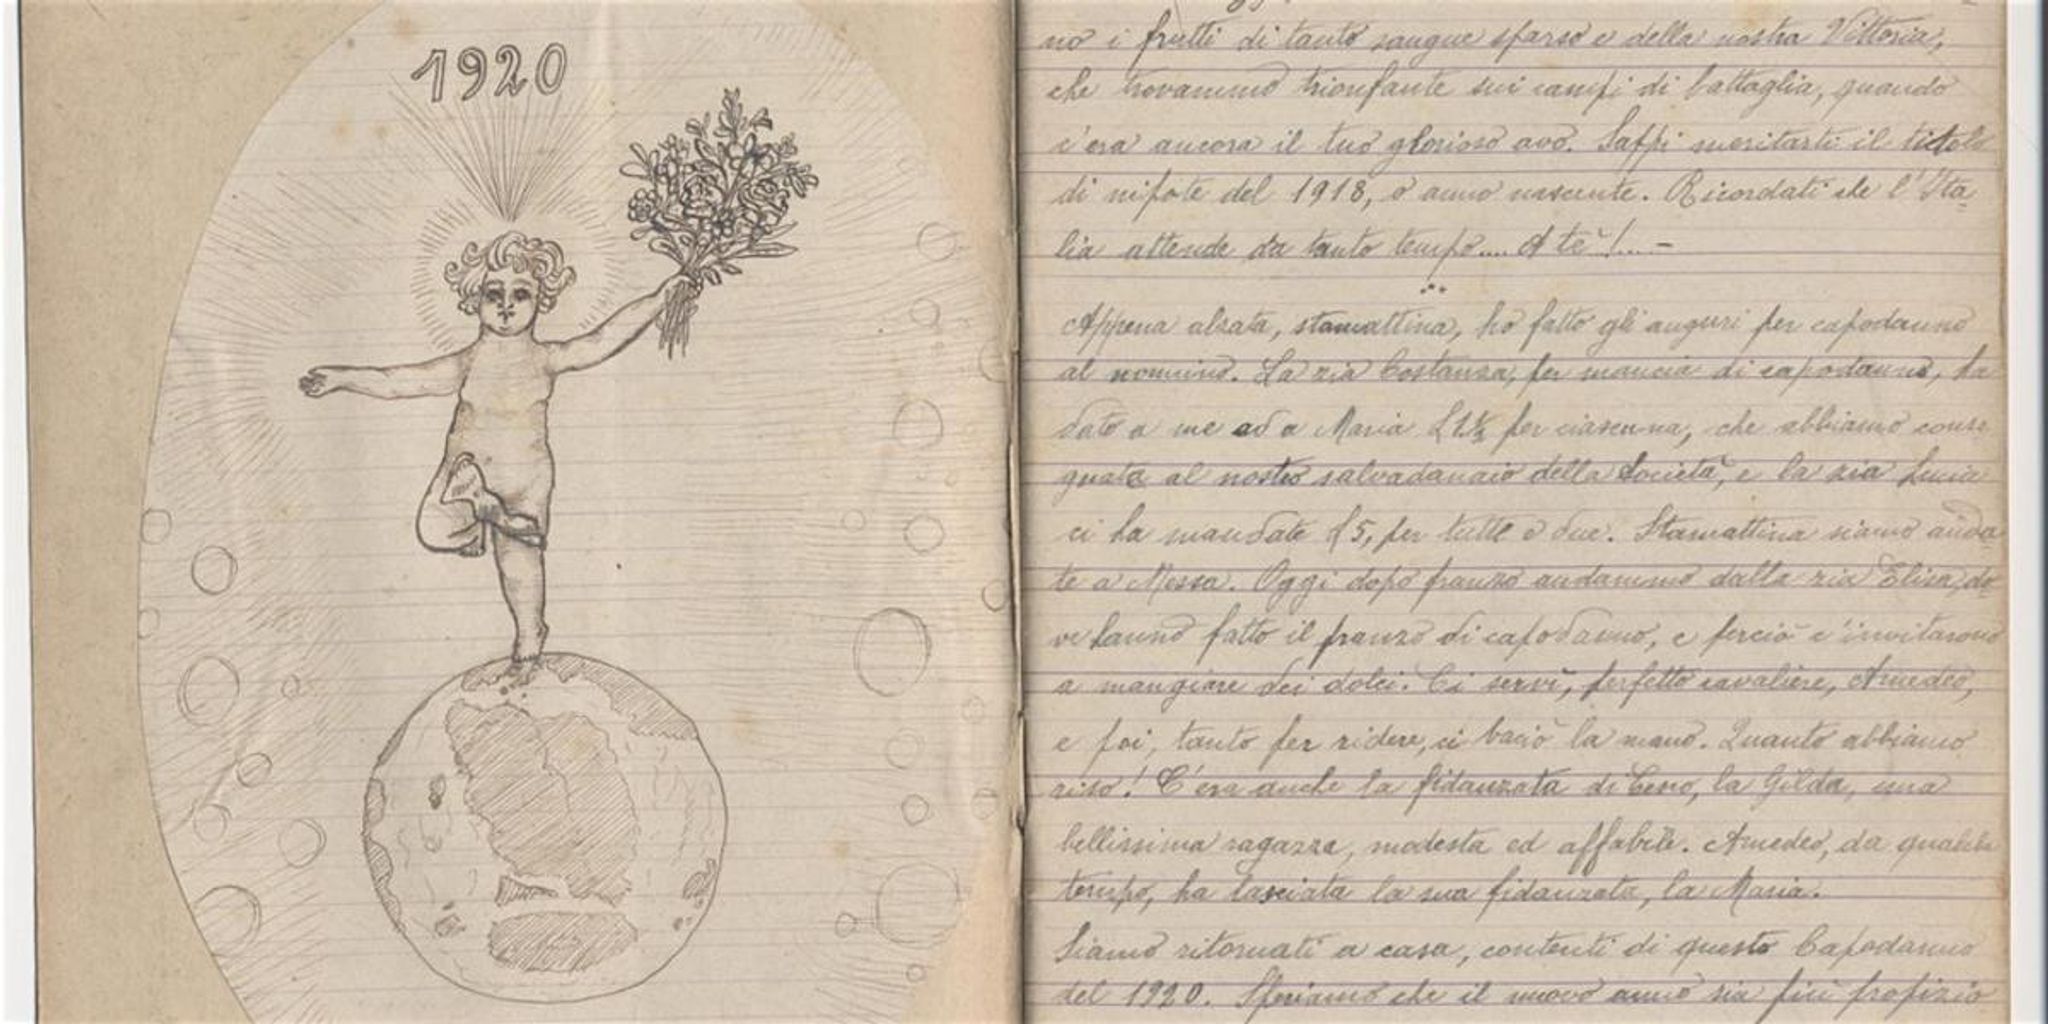 1920
no i frutti di tanto sangue sparso e della nostra Vittoria,
che trovammo trionfante sui campi di battaglia, quando
c'era ancora il tuo glorioso avo. Sappi meritarti il titolo
di nipote del 1918, o anno nascente. Ricordati che l'Ita-
lia attende da tanto tempo.... A te!...-
Appena alzata, stamattina, ho fatto gli auguri per capodanno
al nonnino. La zia Costanza, per mancia di capodanno, ha
dato a me ed a Maria £ 1 ½ per ciascuna, che abbiamo conse
gnate al nostro salvadanaio della Società, e la zia Lucia
ci ha mandate £ 5, per tutte e due. Stamattina siamo anda-
te a Messa. Oggi dopo pranzo andammo dalla zia Elisa, do-
ve hanno fatto il pranzo di capodanno, e perciò c'invitarono
a mangiare dei dolci. Ci servì, perfetto cavaliere, Amedeo,
e poi, tanto per ridere, ci baciò la mano. Quanto abbiamo
riso! C'era anche la fidanzata di la Gilda, una
bellissima ragazza, modesta ed affabile. Amedeo, da qualche
tempo, ha lasciata la sua fidanzata, la Maria.
Siamo ritornati a casa, contenti di questo Capodanno
del 1920. Speriamo che il nuovo anno sia più propizio